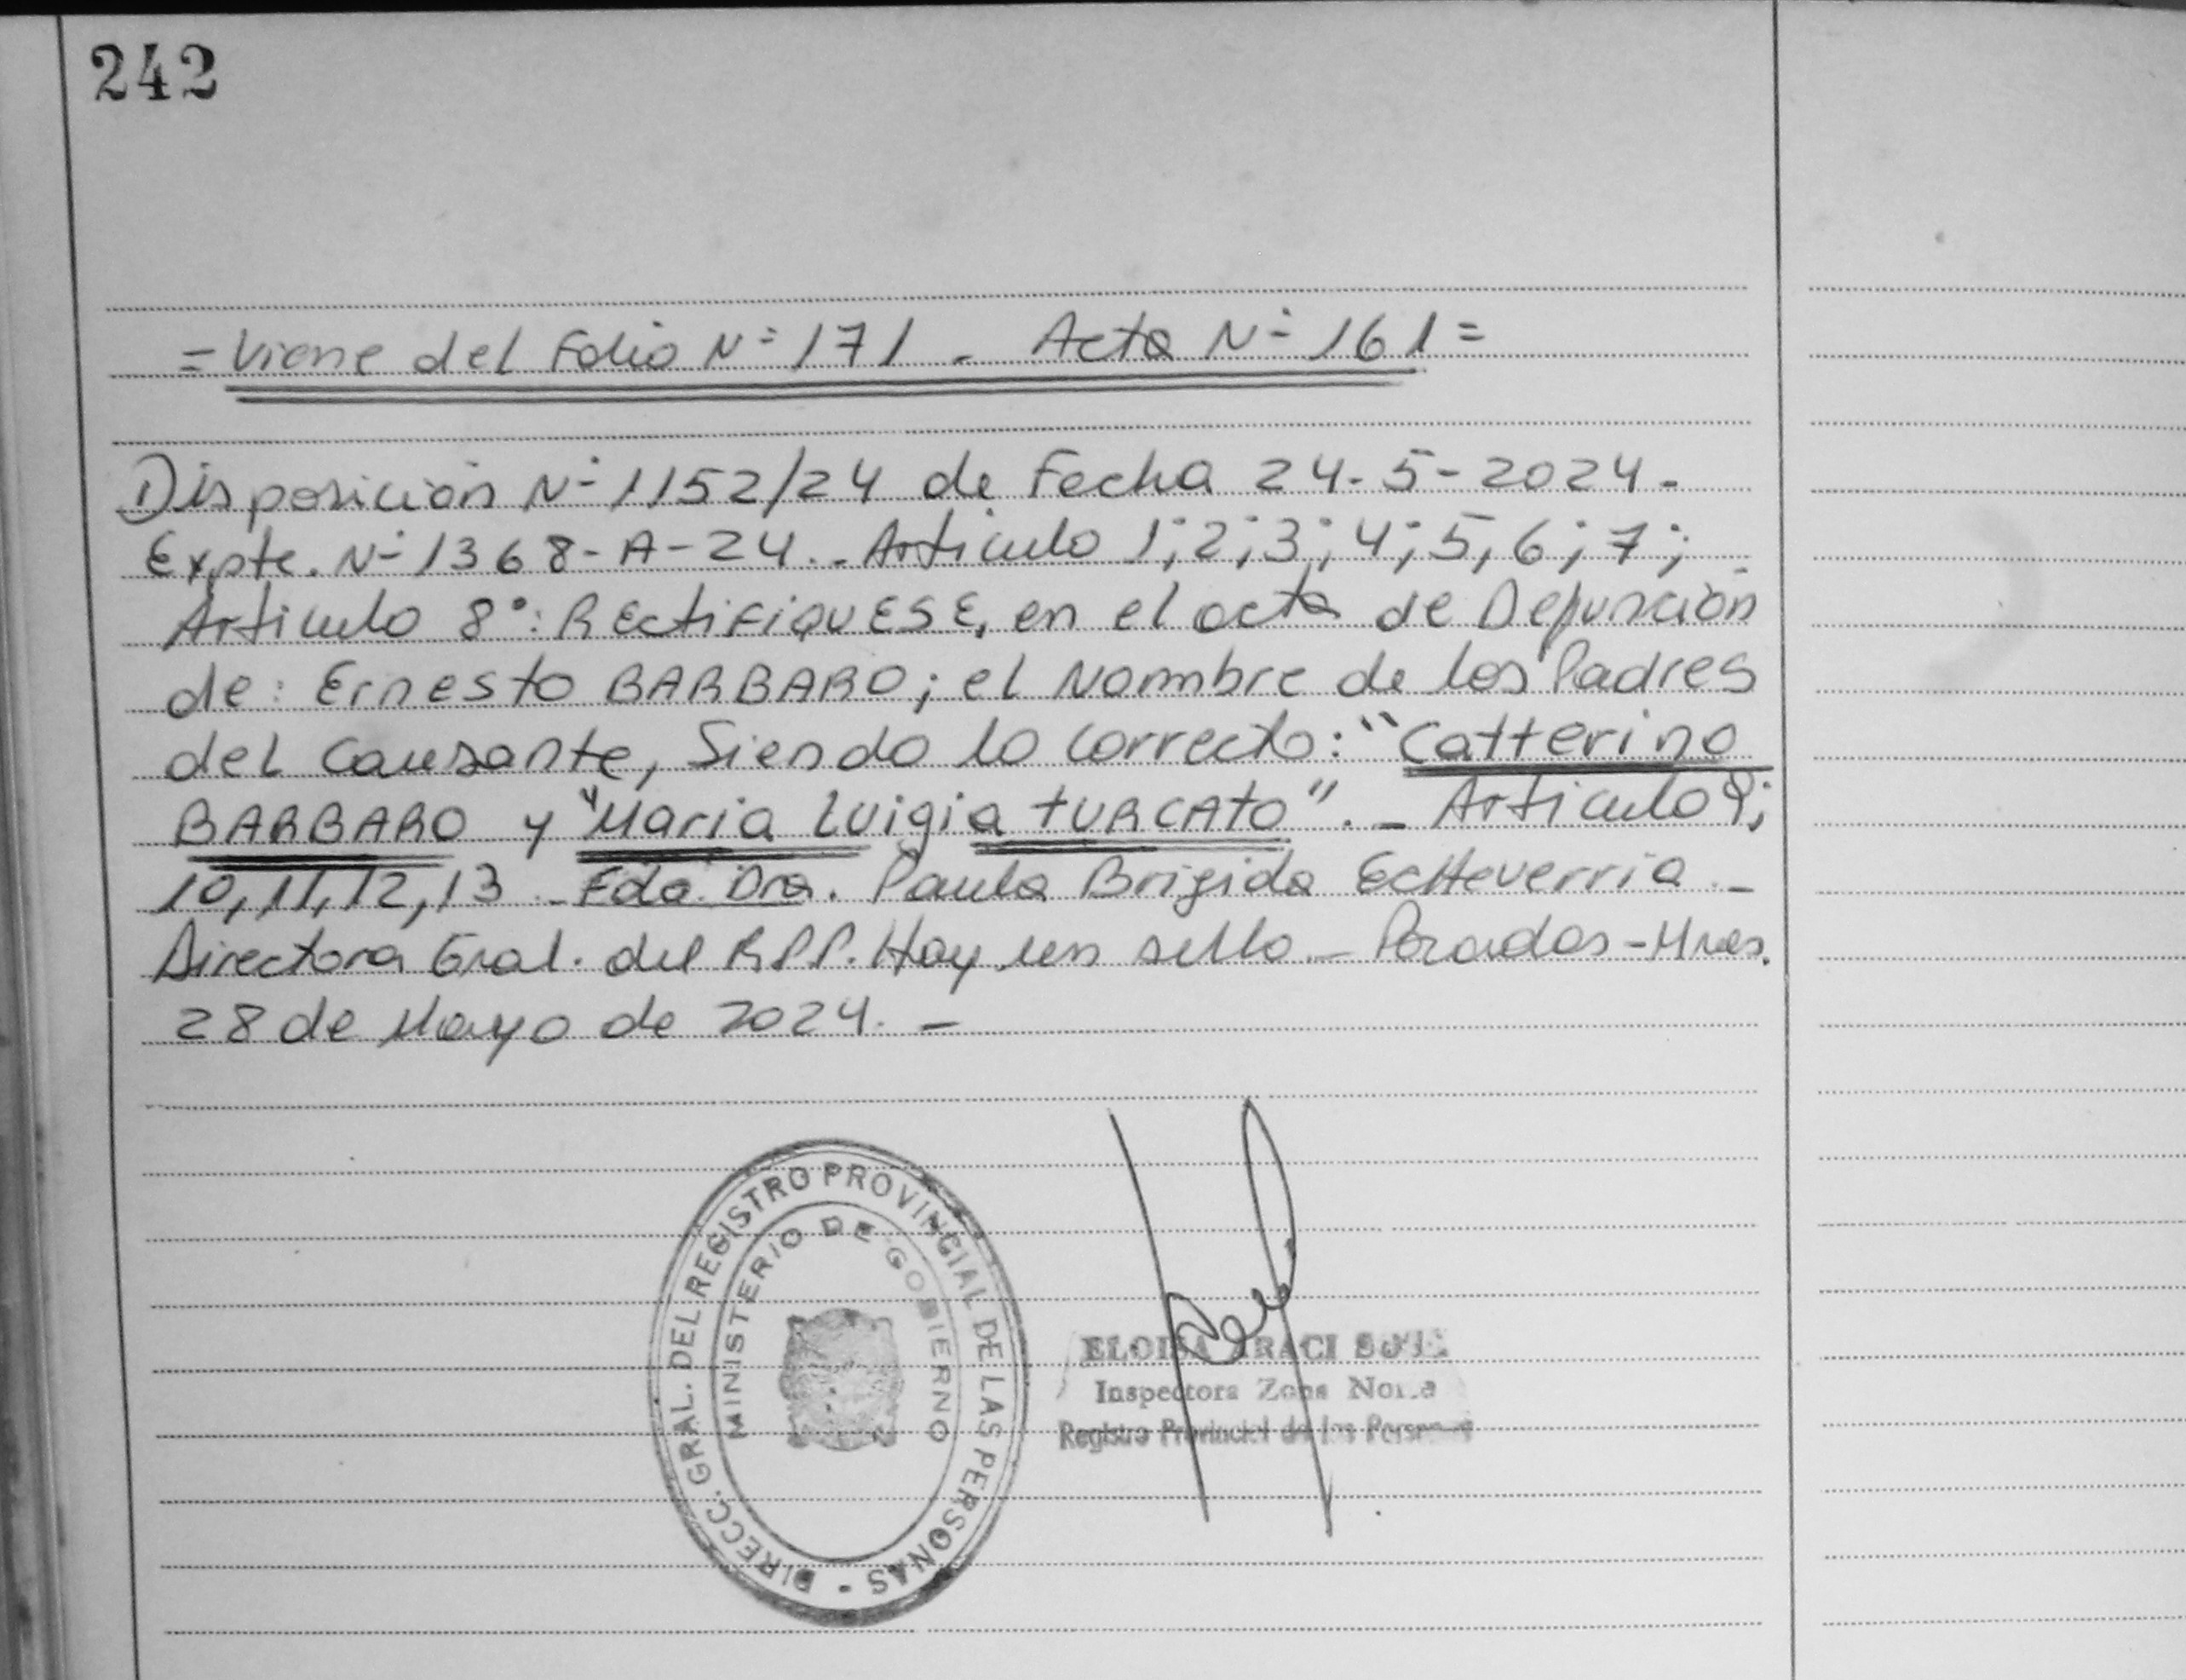 242
= Viene del Folio N° 171 - Acta N° 161 =
Disposición N° 1152/24 de Fecha 24-5-2024.
Expte. N° 1368-A-24.- Articulo 1; 2; 3; 4; 5, 6; 7;
Articulo 8°: RECTIFIQUESE, en el acta de Defunción
de: Ernesto BARBARO; el Nombre de los Padres
del causante, Siendo lo correcto: "Catterino
BARBARO y "Maria Luigia TURCATO".- Articulo 9;
10, 11, 12, 13.- Fdo. Dra. Paula Brigida Echeverria.-
Directora Gral. del RPP. Hay un sello.- Posadas-Mnes.
28 de Mayo de 2024.-
DIRECC. GRAL. DEL REGISTRO PROVINCIAL DE LAS PERSONAS -
MINISTERIO DE GOBIERNO
ELOISA ARACI
Inspectora Zona Norte
Registro Provincial de las Personas